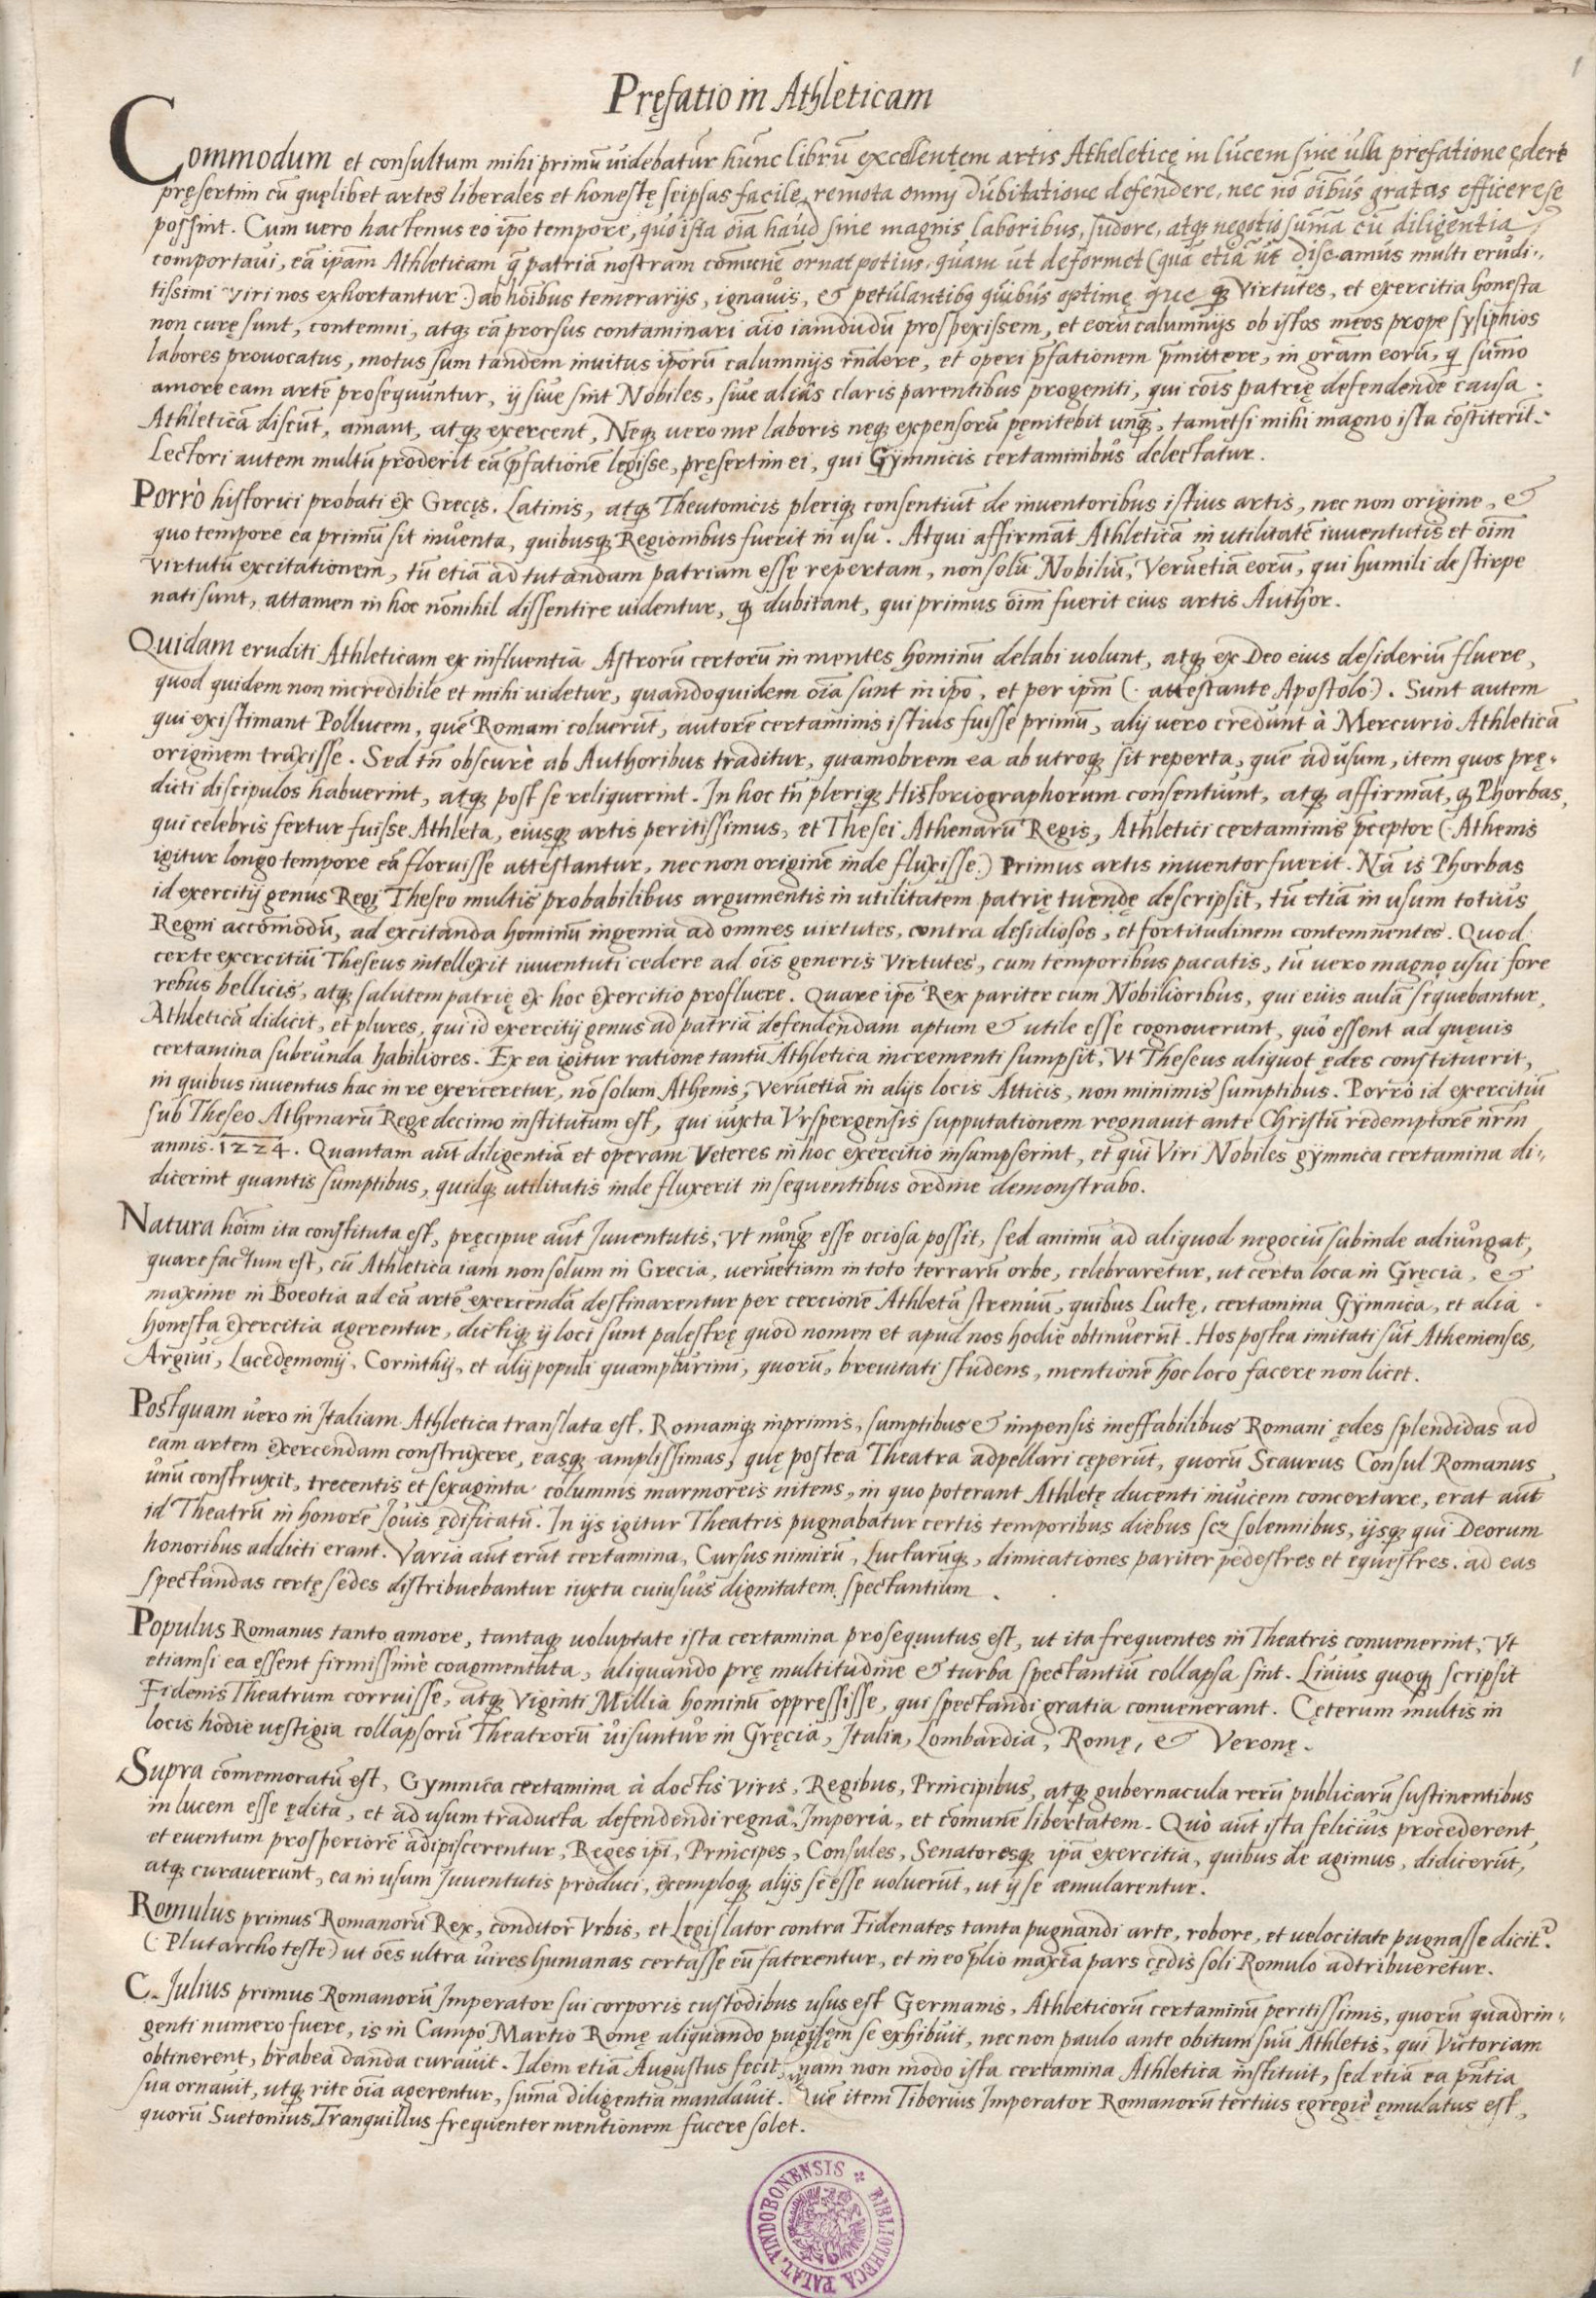 Pręfatio in Athleticam
1
Commodum et consultum mihi primū uidebatur hūnc librū excellentęm artis Atheleticę in lucem sine ulla pręfatione ędere
pręsertim cū quęlibet artes liberales et honestę seipsas facile, remota omni dubitatione defendere, nec nō oībus gratas efficere se
possint. Cum uero hactenus eo ipō tempore, quo ista oīa haud sine magnis laboribus, sudore, atq negotio sūma cū diligentia
comportaui, eā ipām Athleticam q̄ patriā nostram comunē ornat potius, quam ut deformet (quā etiā ut discamus multi erudi-,
tissimi viri nos exhortantur.) ab hoībus temerarijs, ignauis, & petulantibq quibus optimę que q virtutes, et exercitia honesta
non curę sunt, contemni, atq eā prorsus contaminari aīo iamdudū prospexissem, et eorū calumnijs ob istos meos prope sysiphios
labores prouocatus, motus sum tandem inuitus ipōrū calumnijs rn̄dere, et operi p̄fationem p̄mittere, in grām eorū, q sūmo
amore eam artē prosequuntur, ij siue sint Nobiles, siue alias claris parentibus progeniti, qui cōis patrię defendende causa.
Athleticā discūt, amant, atq exercent, Neq uero me laboris neq expensorū pęnitebit unq̄, tametsi mihi magno ista cōstiterīt.
Lectori autem multū proderit eā p̄fationē legisse, pręsertim ei, qui Gymnicis certaminibus delectatur.
Porrò historici probati ex Grecis. Latinis, atq Theutonicis pleriq consentiūt de inuentoribus istius artis, nec non origine, &
quo tempore ea primū sit inuenta, quibusq Regionibus fuerit in usu. Atqui affirmāt Athleticā in utilitatē iuuentutis et oīm
virtutū excitationem, tū etiā ad tutandam patriam esse repertam, non solū Nobiliū, Verūetiā eorū, qui humili de stirpe
nati sunt, attamen in hoc nōnihil dissentire uidentur, q dubitant, qui primus oīm fuerit eius artis Author.
Quidam eruditi Athleticam ex influentia Astrorū certorū in mentes hominū delabi uolunt, atq ex Deo eius desideriū fluere,
quod quidem non incredibile et mihi uidetur, quandoquidem oīa sunt in ipō, et per ipm̄ (. attestante Apostolo.). Sunt autem
qui existimant Pollucem, quē Romani coluerūt, autorē certaminis istius fuisse primū, alij uero credunt à Mercurio Athleticā
originem traxisse. Sed tn̄ obscurè ab Authoribus traditur, quamobrem ea ab utroq sit reperta, quē ad usum, item quos prę-
dicti discipulos habuerint, atq post se reliquerint. In hoc tn̄ pleriq Historiographorum consentiunt, atq affirmāt, q Phorbas,
qui celebris fertur fuisse Athleta, eiusq artis peritissimus, et Thesei Athenarū Regis, Athletici certaminis p̄ceptor (. Athenis
igitur longo tempore eā floruisse attestantur, nec non originē inde fluxisse.) Primus artis inuentor fuerit. Nā is Phorbas
id exercitij genus Regi Theseo multis probabilibus argumentis in utilitatem patrię tuendę descripsit, tū etiā in usum totius
Regni accōmodū, ad excitanda hominū ingenia ad omnes uirtutes, contra desidiosos, et fortitudinem contemnentes. Quod
certe exercitiū Theseus intellexit iuuentuti cedere ad oīs generis virtutes, cum temporibus pacatis, tū uero magno usui fore
rebus bellicis, atq salutem patrię ex hoc exercitio profluere. Quare ipē Rex pariter cum Nobilioribus, qui eius aulā sequebantur,
Athleticā didicit, et plures, qui id exercitij genus ad patriā defendendam aptum & utile esse cognouerunt, quo essent ad quęuis
certamina subeunda habiliores. Ex ea igitur ratione tantū Athletica incrementi sumpsit, Vt Theseus aliquot ędes constituerit,
in quibus iuuentus hac in re exerceretur, nō solum Athenis, verūetiā in alijs locis Atticis, non minimis sumptibus. Porrò id exercitiū
sub Theseo Athenarū Rege decimo institutum est, qui iuxta Vrspergensis supputationem regnauit ante Christū redemptorē nr̄m
annis. 1224. Quantam aūt diligentiā et operam Veteres in hoc exercitio insumpserint, et qui Viri Nobiles gymnica certamina di-,
dicerint quantis sumptibus, quidq utilitatis inde fluxerit in sequentibus ordine demonstrabo.
Natura hoīm ita constituta est, pręcipue aūt Iuuentutis, Vt nunq̄ esse ociosa possit, sed animū ad aliquod negociū subinde adiungat,
quare factum est, cū Athletica iam non solum in Grecia, uerūetiam in toto terrarū orbe, celebraretur, ut certa loca in Gręcia, &
maxime in Boeotia ad eā artē exercendā destinarentur per cercionē Athletā strenuū, quibus Luctę, certamina Gymnica, et alia
honesta exercitia agerentur, dictiq ij loci sunt palestrę quod nomen et apud nos hodie obtinuerūt. Hos postea imitati sūt Athenienses,
Argiui, Lacedęmonij, Corinthij, et alij populi quamplurimi, quorū, breuitati studens, mentionē hoc loco facere non licet.
Postquam uero in Italiam Athletica translata est, Romamq inprimis, sumptibus & impensis ineffabilibus Romani ędes splendidas ad
eam artem exercendam construxere, easq amplissimas, quę postea Theatra adpellari cęperūt, quorū Scaurus Consul Romanus
unū construxit, trecentis et sexaginta columnis marmoreis nitens, in quo poterant Athletę ducenti inuicem concertare, erat aūt
id Theatrū in honorē Iouis ędificatū. In ijs igitur Theatris pugnabatur certis temporibus diebus scz solennibus, ijsq qui Deorum
honoribus addicti erant. Varia aūt erāt certamina, Cursus nimirū, Luctarūq, dimicationes pariter pedestres et equestres. ad eas
spectandas certę sedes distribuebantur iuxta cuiusuis dignitatem spectantium.
Populus Romanus tanto amore, tantaq uoluptate ista certamina prosequutus est, ut ita frequentes in Theatris conuenerint, Vt
etiamsi ea essent firmissimè coagmentata, aliquando prę multitudine & turba spectantiū collapsa sint. Liuius quoq scripsit
Fidenis Theatrum corruisse, atq Viginti Millia hominū oppressisse, qui spectandi gratia conuenerant. Cęterum multis in
locis hodie uestigia collapsorū Theatrorū uisuntur in Gręcia, Italia, Lombardia, Romę, & Veronę.
Supra cōmemoratū est, Gymnica certamina à doctis Viris, Regibus, Principibus, atq gubernacula rerū publicarū sustinentibus
in lucem esse ędita, et ad usum traducta defendendi regna, Imperia, et cōmunē libertatem. Quò aūt ista felicius procederent,
et euentum prosperiorē adipiscerentur, Reges ipī, Principes, Consules, Senatoresq ipā exercitia, quibus de agimus, didicerūt,
atq curauerunt, ea in usum Iuuentutis produci, exemploq alijs se esse uoluerūt, ut ij se æmularentur.
Romulus primus Romanorū Rex, conditor Vrbis, et Legislator contra Fidenates tanta pugnandi arte, robore, et uelocitate pugnasse dicit.
(. Plutarcho teste) ut oēs ultra uires humanas certasse eū faterentur, et in eo p̄lio maxīa pars cędis soli Romulo adtribueretur.
C. Julius primus Romanorū Imperator sui corporis custodibus usus est Germanis, Athleticorū certaminū peritissimis, quorū quadrin-,
genti numero fuere, is in Campo Martio Romę aliquando pugilem se exhibuit, nec non paulo ante obitum suū Athletis, qui Victoriam
obtinerent, brabea danda curauit. Idem etiā Augustus fecit, nam non modo ista certamina Athletica instituit, sed etiā ea pn̄tia
sua ornauit, utq rite oīa agerentur, sūma diligentia mandauit. Quē item Tiberius Imperator Romanorū tertius egregiè ęmulatus est,
quorū Suetonius Tranquillus frequenter mentionem facere solet.
BIBLIOTHECA PALAT. VINDOBONENSIS